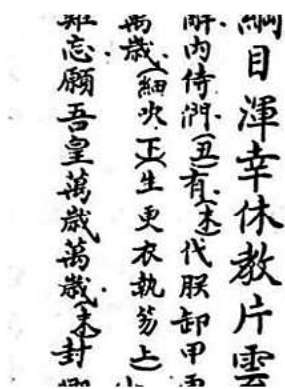 綱目渾幸休教片雲
辭內侍們(丑)有(末)代朕卸甲更
萬歲(細吹下)(生更衣執笏上)
難忘願吾皇萬歲萬歲(末)封